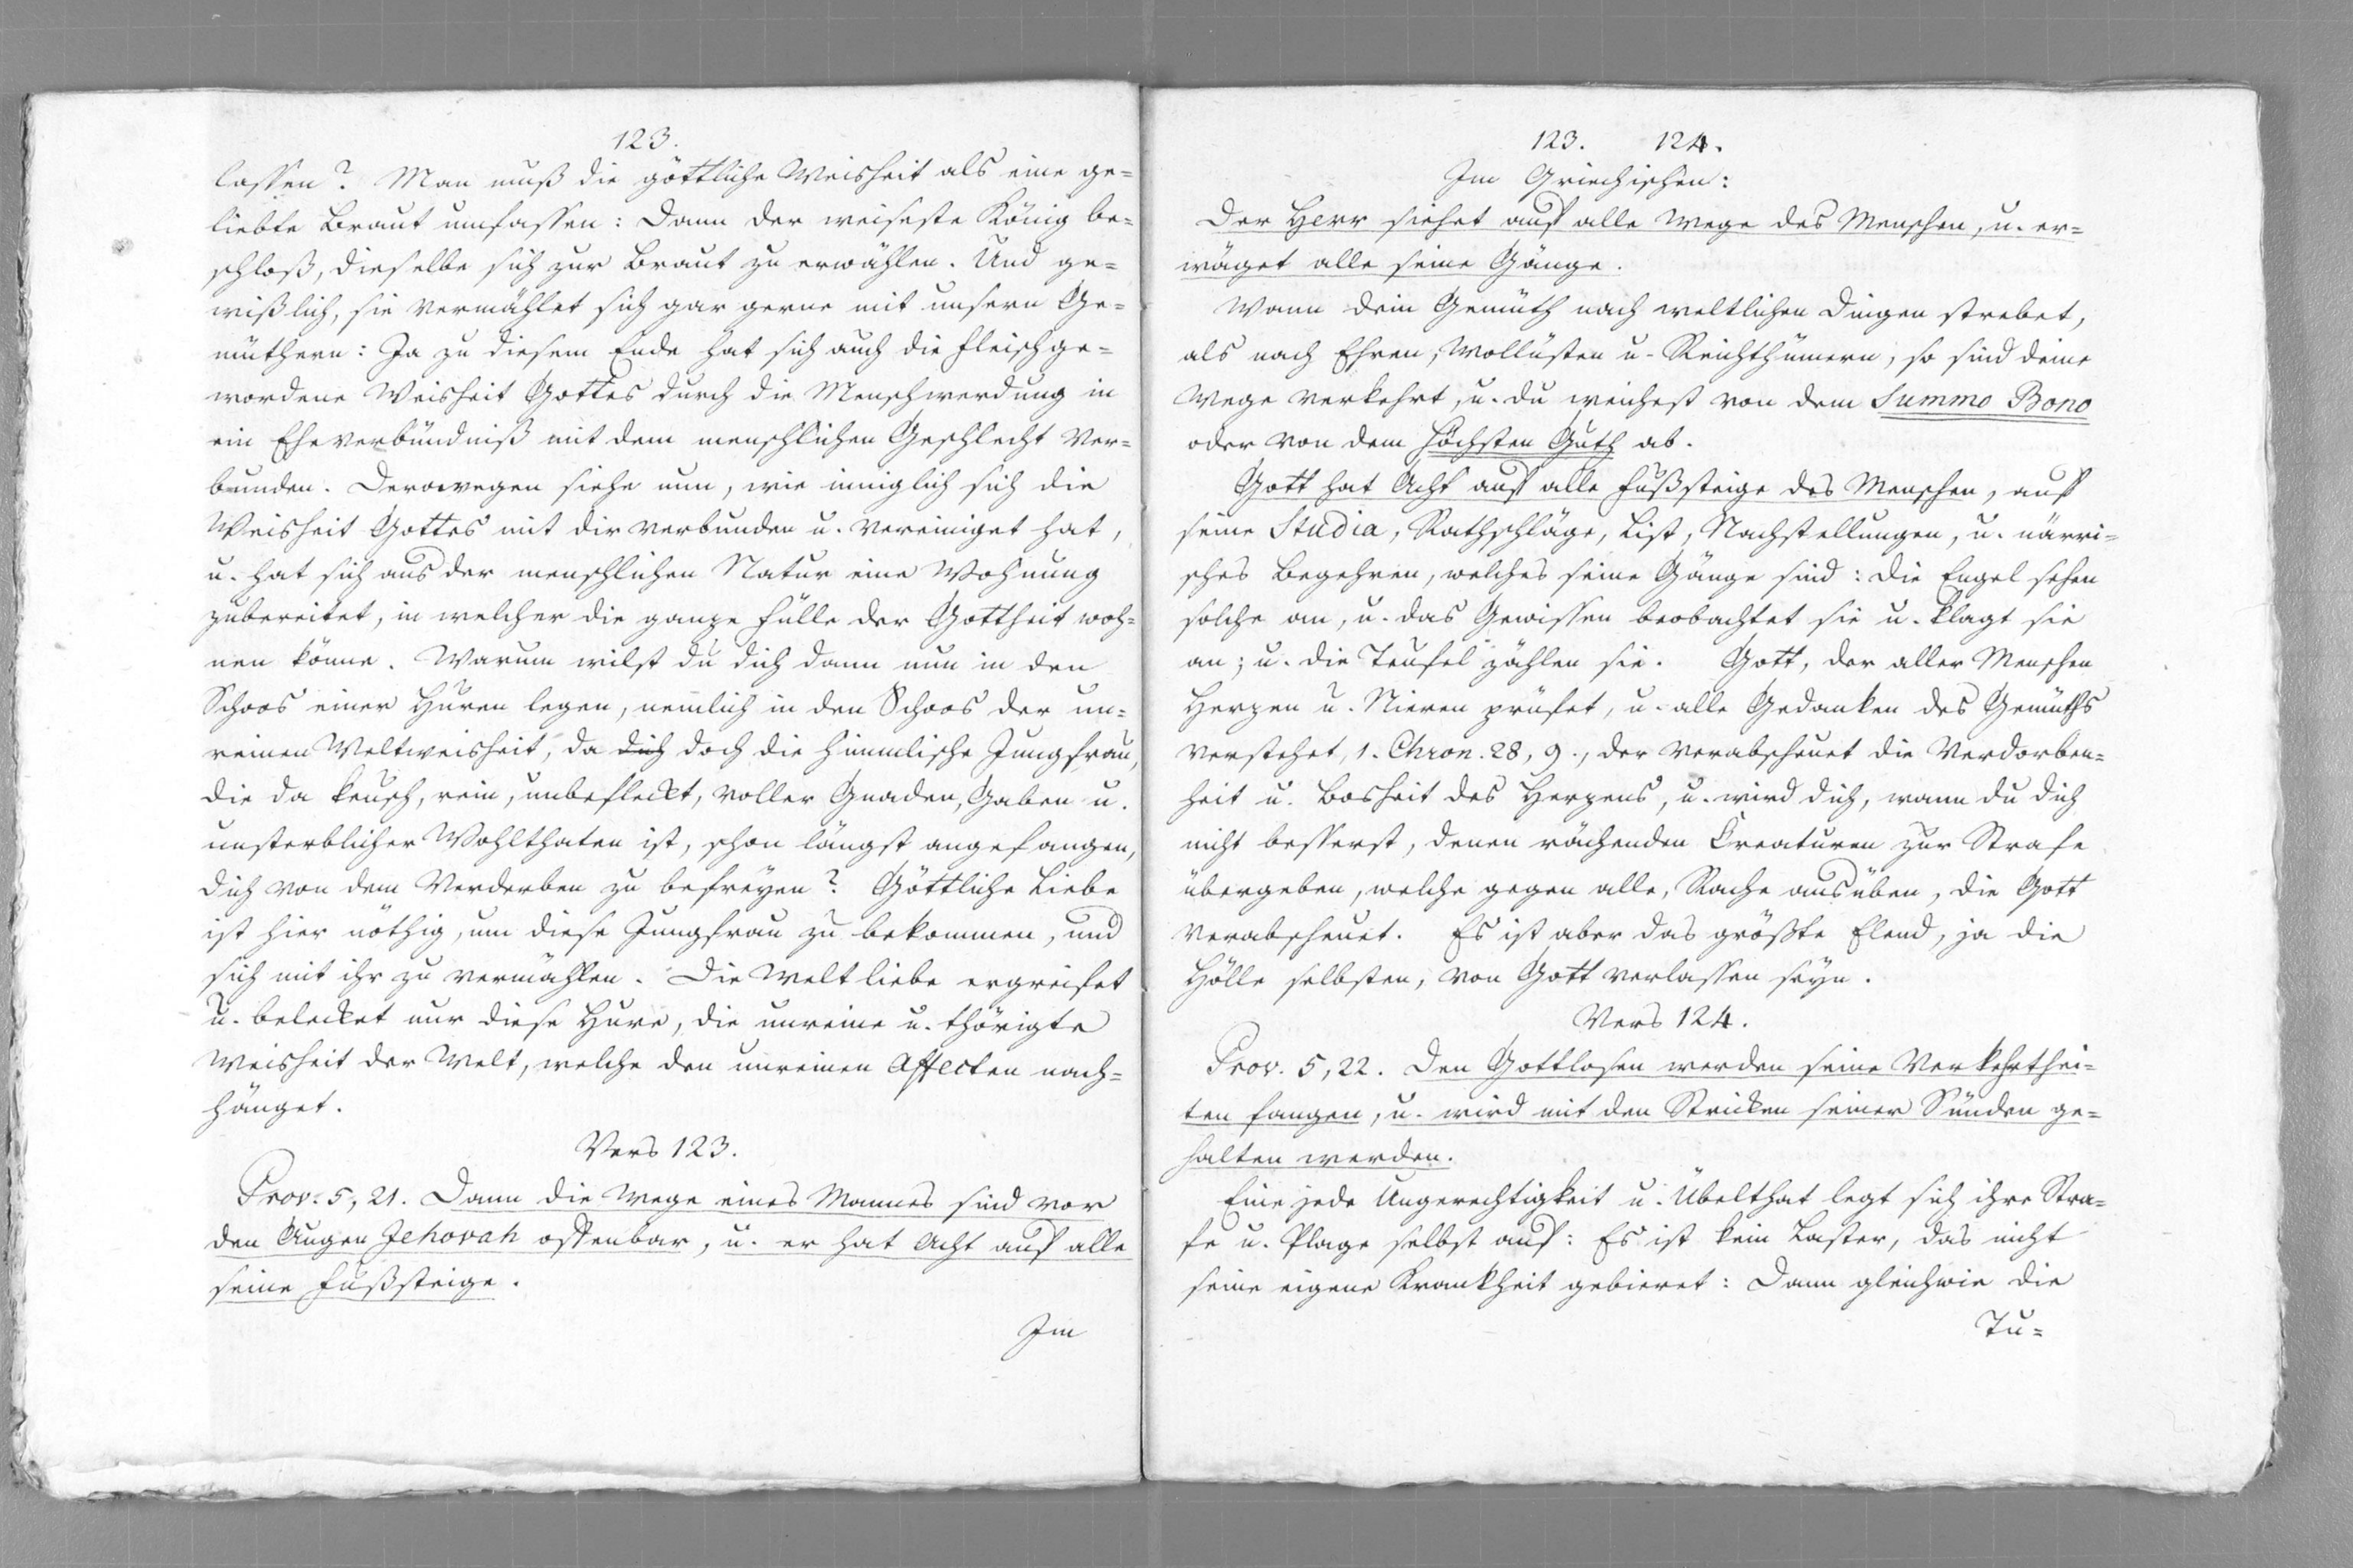 123.
lassen? Man muß die göttliche Weisheit als eine ge-
liebte Braut umfassen: Dann der weiseste König be-
schloß, dieselbe sich zur Braut zu erwählen. Und ge-
wißlich, sie vermählet sich gar gerne mit unsern Ge-
müthern: Ja zu diesem Ende hat sich auch die fleischge-
wordene Weisheit Gottes durch die Menschwerdung in
ein Eheverbündniß mit dem menschlichen Geschlecht ver-
bunden. Derowegen siehe nun, wie inniglich sich die
Weisheit Gottes mit dir verbunden u. vereiniget hat,
u. hat sich aus der menschlichen Natur eine Wohnung
zubereitet, in welcher die ganze Fülle der Gottheit woh-
nen könne. Warum wilst du dich dann nun in den
Schoos einer Huren legen, nemlich in den Schoos der un-
reinen Weltweisheit, da dich doch die himmlische Jungfrau,
die da keusch, rein, unbefleckt, voller Gnaden, Gaben u.
unsterblicher Wohlthaten ist, schon längst angefangen,
dich von dem Verderben zu befreyen? Göttliche Liebe
ist hier nöthig, um diese Jungfrau zu bekommen, und
sich mit ihr zu vermählen. Die Weltliebe ergreifet
u. belecket nur diese Hure, die unreine u. thörigte
Weisheit der Welt, welche den unreinen Affecten nach-
hänget.
Vers 123.
Prov. 5, 21. Dann die Wege eines Mannes sind vor
den Augen Jehovah offenbar, u. er hat Acht auf alle
seine Fußsteige.
Im
123. 124.
Im Griechischen:
Der Herr siehet auf alle Wege des Menschen, u. er-
wäget alle seine Gänge.
Wann dein Gemüth nach weltlichen Dingen strebet,
als nach Ehren, Wollüsten u. Reichthümern, so sind deine
Wege verkehrt, u. du weichest von dem Summo Bono
oder von dem höchsten Guth ab.
Gott hat Acht auf alle Fußsteige des Menschen, auf
seine Studia, Rathschläge, List, Nachstellungen, u. närri-
sches Begehren, welches seine Gänge sind: Die Engel sehen
solche an, u. das Gewissen beobachtet sie u. klagt sie
an; u. die Teufel zählen sie. Gott, der aller Menschen
Herzen u. Nieren prüfet, u. alle Gedanken des Gemüths
verstehet, 1. Chron. 28, 9., der verabscheuet die Verdorben-
heit u. Bosheit des Herzens, u. wird dich, wann du dich
nicht besserst, denen rächenden Creaturen zur Strafe
übergeben, welche gegen alle, Rache ausüben, die Gott
verabscheuet. Es ist aber das größte Elend, ja die
Hölle selbsten, von Gott verlassen seyn.
Vers 124.
Prov. 5, 22. Den Gottlosen werden seine Verkehrthei-
ten fangen, u. wird mit den Stricken seiner Sünden ge-
halten werden.
Eine jede Ungerechtigkeit u. Übelthat legt sich ihre Stra-
fe u. Plage selbst auf: Es ist kein Laster, das nicht
seine eigene Krankheit gebieret: Dann gleichwie die
Tu-